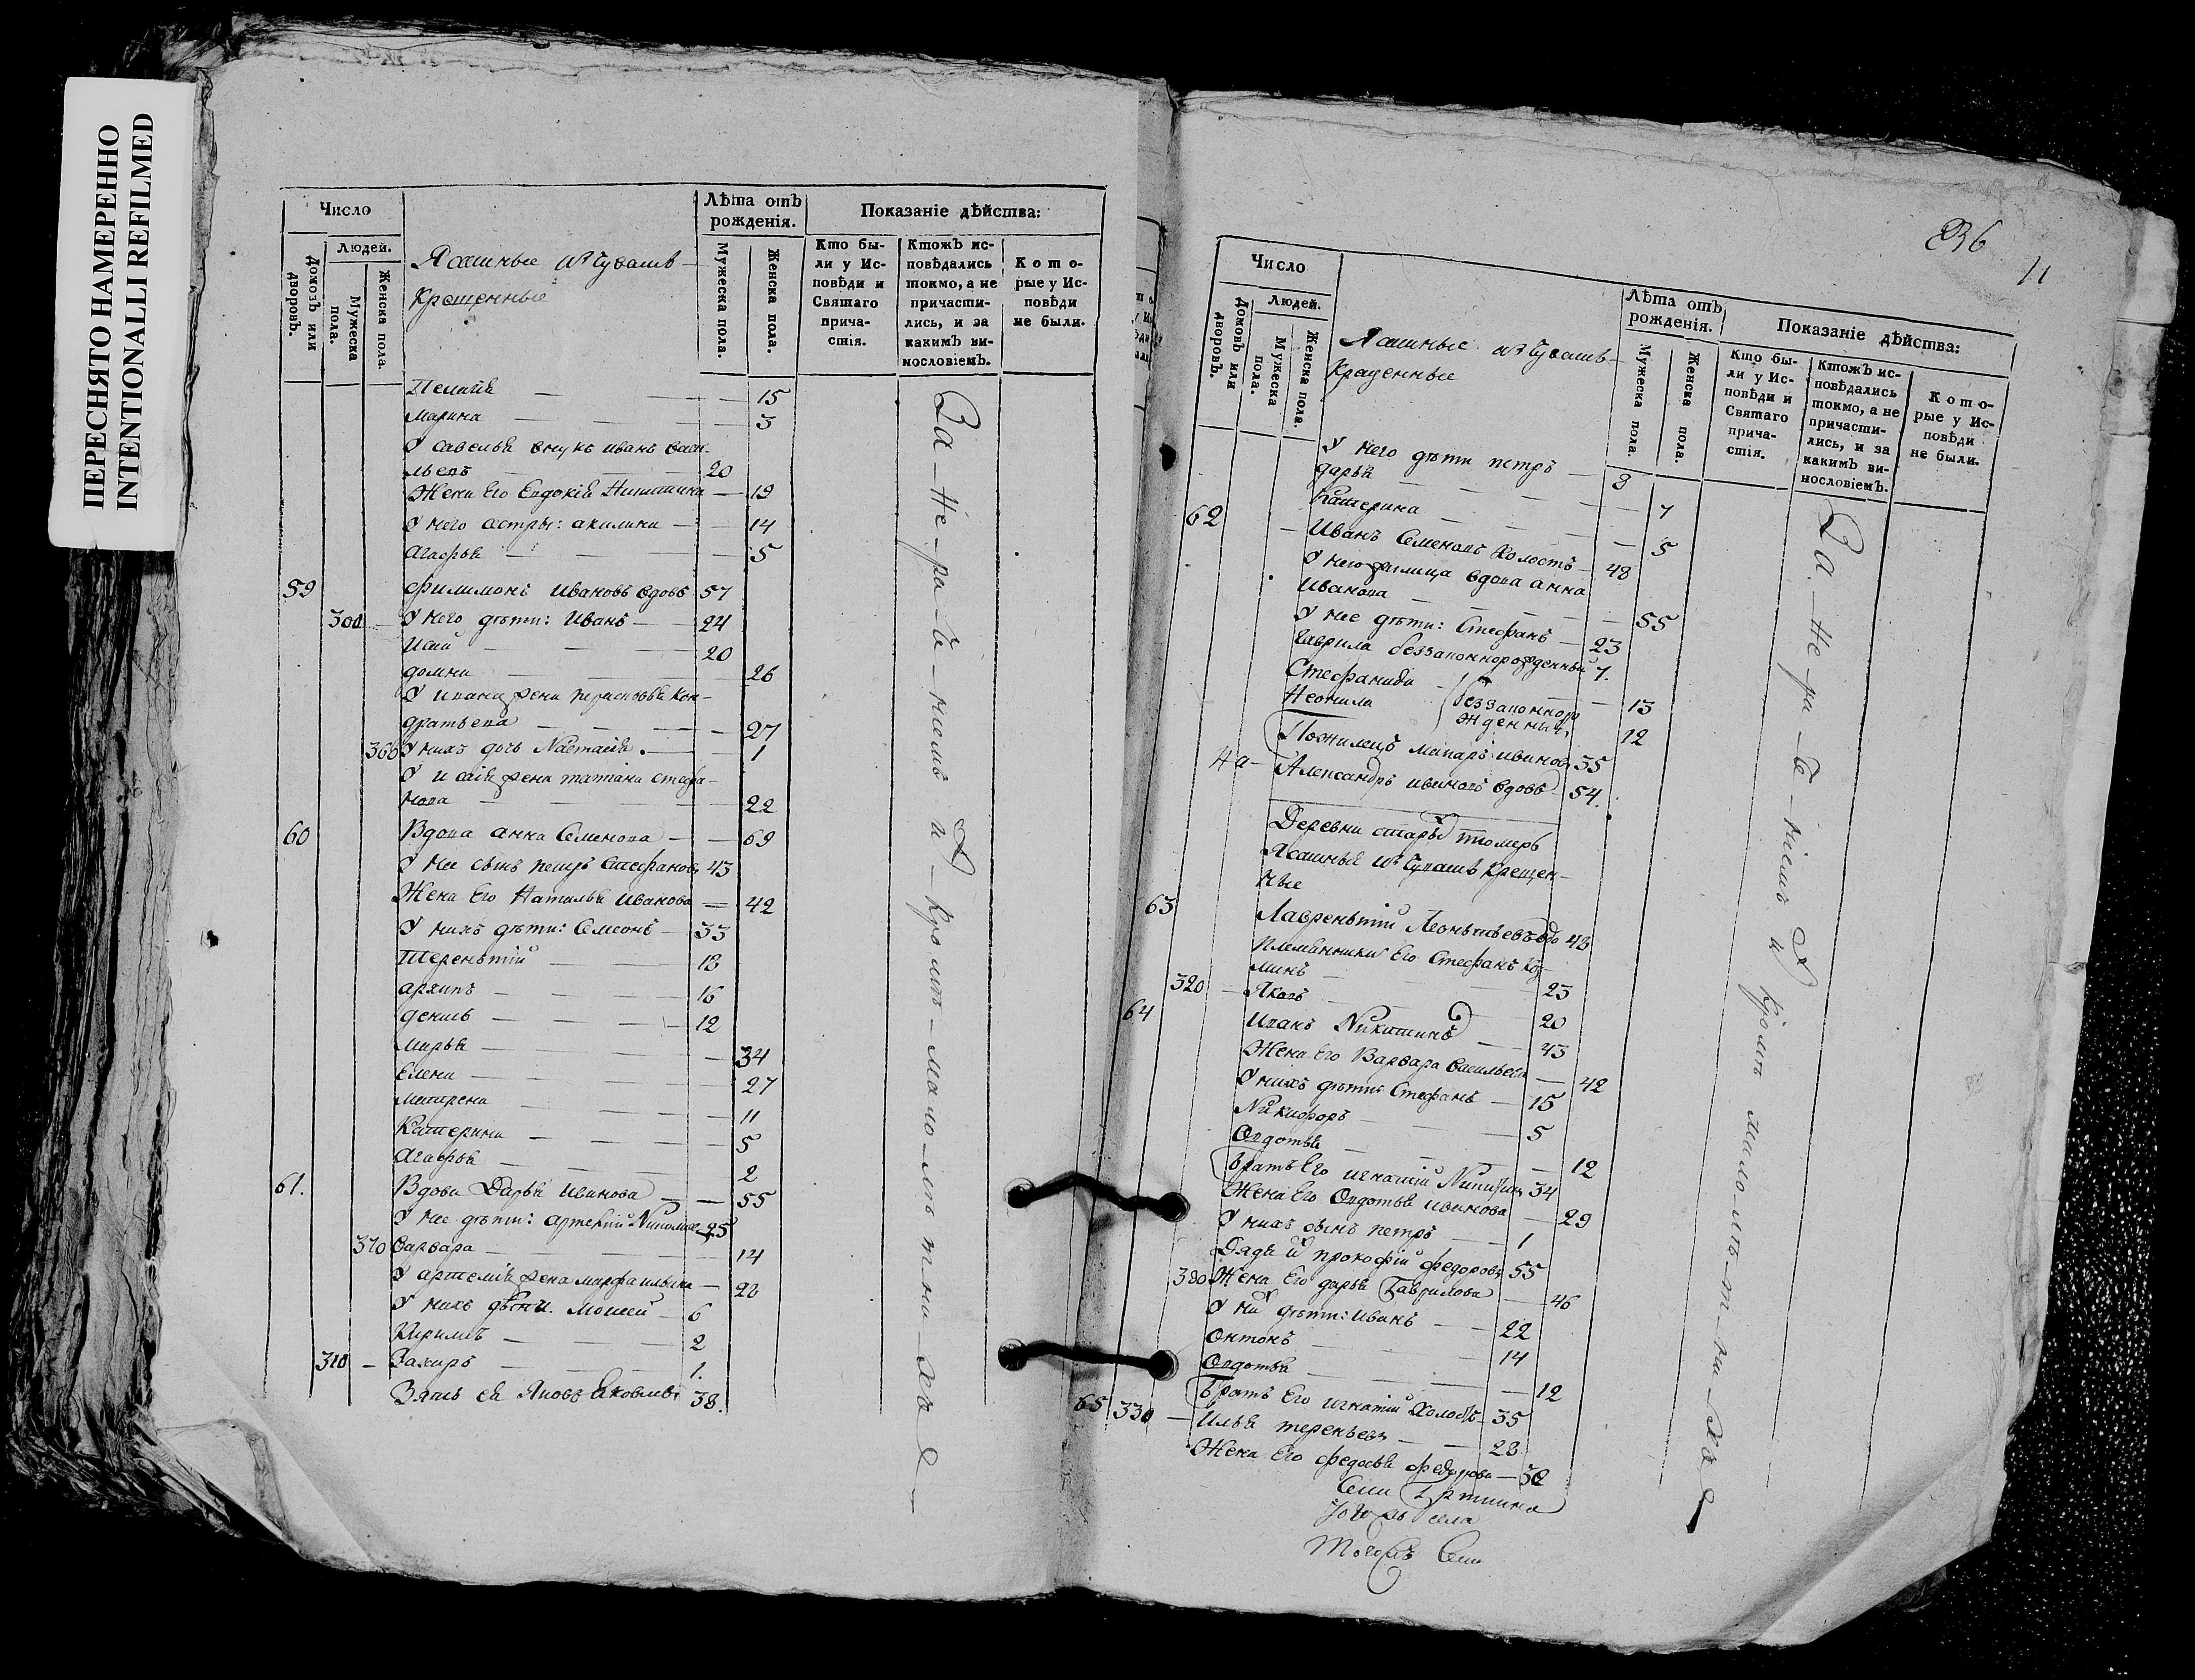 ПЕРЕСНЯТО НАМЕРЕННО
INTENTIONALLI REFILMED
Число
Людей.
Домовъ или дворовъ.
Мужеска пола.
Женска пола.
Ясашные изъ Чувашъ
Крещенные
Лѣта отъ рожденія.
Мужеска пола.
Женска пола.
Показаніе дѣйства:
Кто бы-
ли у Ис-
повѣди и
Святаго
прича-
стія.
Ктожъ ис-
повѣдались
токмо, а не
причасти-
лись, и за
какимъ ви-
нословіемъ.
Кото-
рые у Ис-
повѣди
не были.
Пелагѣя — 15
Марина — 3
У савелья внукъ иванъ васи-
льевъ — 20
Жена Его Евдокія Никитина — 19
У него сестры: акилина — 14
агафья — 5
59 Филимонъ Ивановъ вдовъ 57
300 У него дѣти: Иванъ — 24
Исай — 20
домна — 26
У ивана жена прасковья кон-
дратьева — 27
360 У нихъ дочь Настасья — 1
У исаія жена татіана стефа-
нова — 22
60 Вдова анна Семенова — 69
У нее сынъ петръ Стефановъ 43
Жена Его Наталья Иванова — 42
У нихъ дѣти: Семенъ — 33
Терентій — 18
архипъ — 16
денисъ — 12
марья — 34
Елена — 27
матрена — 11
Катерина — 5
агафья — 2
61. Вдова Дарья Иванова — 55
У нее дѣти: артемій 25
370 Варвара — 14
У артемія жена марфа ильина — 28
У нихъ дѣти: моисей — 6
2
310 — Захаръ — 1.
Зять ея Яковъ Яковлевъ 38.
За не ра че нiемъ и кромѣ малолѣтныхъ
36
11
Число
Людей.
Домовъ или дворовъ.
Мужеска пола.
Женска пола.
Ясашные изъ Чувашъ
Крещенные
Лѣта отъ рожденія.
Мужеска пола.
Женска пола.
Показаніе дѣйства:
Кто бы-
ли у Ис-
повѣди и
Святаго
прича-
стія.
Ктожъ ис-
повѣдались
токмо, а не
причасти-
лись, и за
какимъ ви-
нословіемъ.
Кото-
рые у Ис-
повѣди
не были.
У него дѣти петръ — 9
дарья — 7
Катерина — 5
62 — Иванъ Семеновъ Холостъ — 48
У него жилица вдова анна
Иванова — 55
У нее дѣти: Стефанъ — 23
Гаврила беззаконнорожденный 7.
Стефанида — 13
Неонила 12
беззаконноро
жденныя
Пожилецъ макаръ ивановъ 35
Александръ ивановъ вдовъ 54.
Деревни старыхъ
Ясашные изъ Чувашъ Крещен-
ные
63 Лаврентій Леонтьевъ вдо 48
Племянники Его Стефанъ Коз-
минъ — 23
320 — Яковъ — 20
64 Иванъ Никитинъ — 43
Жена Его Варвара васильева — 42
У нихъ дѣти: Стефанъ — 15
Никифоръ — 5
Овдотья — 12
Братъ Его игнатій Никитинъ 34
Жена Его Овдотья иванова — 29
У нихъ сынъ петръ — 1
Дядя ихъ прокофій федоровъ 55
380 Жена Его дарья Гаврилова — 46
У них дѣти: Иванъ — 22
Онтонъ — 14
Овдотья — 12
Братъ Его игнатій Холостъ 35
65 330 — Илья терентьевъ — 28
Жена Его федосья Федорова — 38
За не ра че нiемъ и кромѣ малолѣтныхъ
села